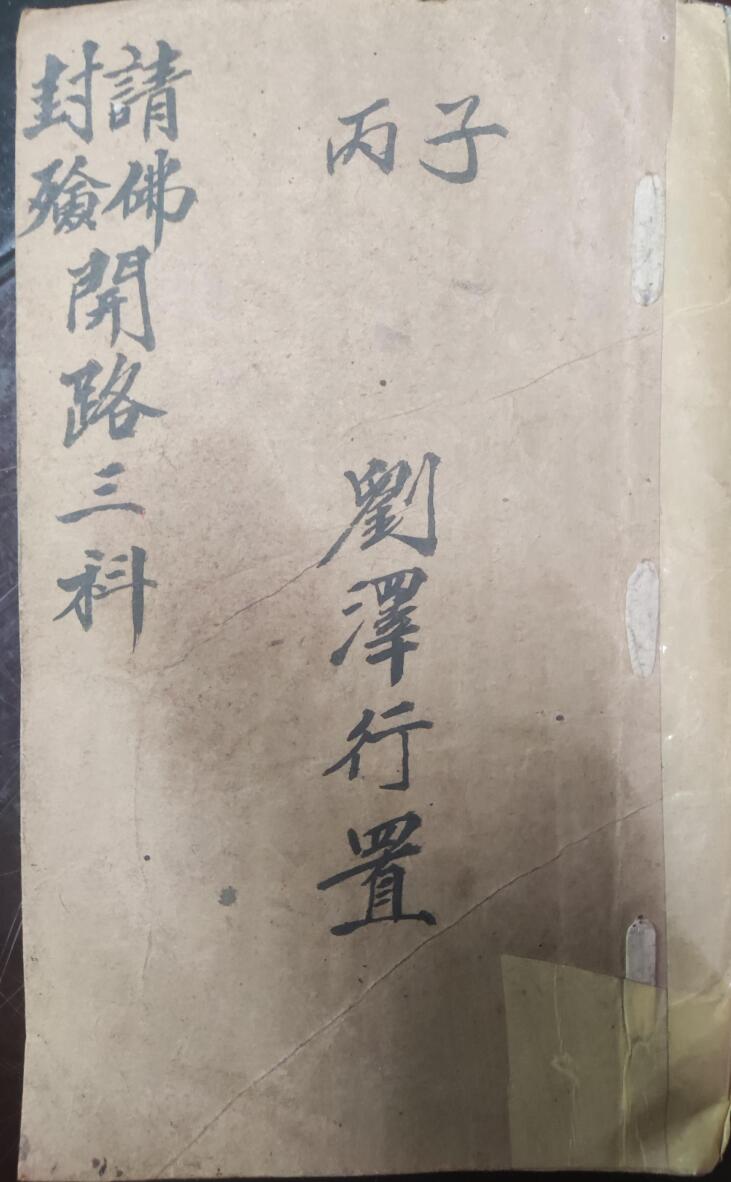 丙子
劉澤行置
請佛
封殮
開路三科